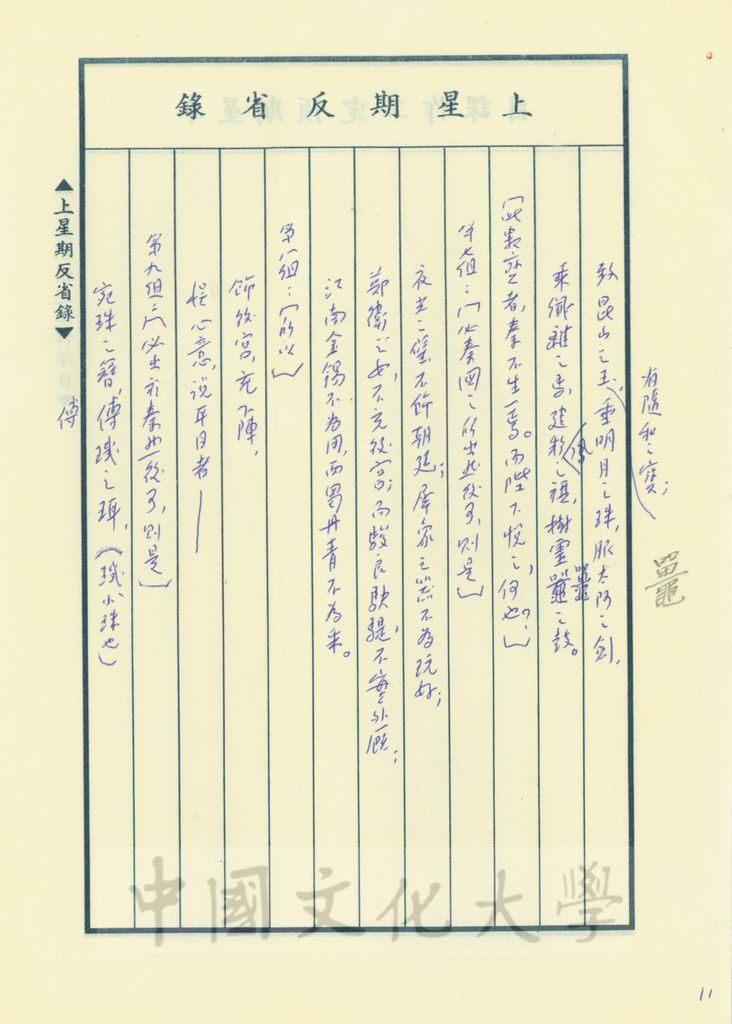 上星期反省錄
有隨和之寶；
致昆山之玉，垂明月之珠，服太阿之劍，
乘纖離之馬，建翠鳳之旗，樹靈鼉之鼓。
鼉
鼉
「此數寶者，秦不生一焉。而陛下悅之，何也？」
第七組：「必秦國之所出然後可，則是」
夜光之璧不飾朝廷；犀象之器不為玩好；
鄭衛之女，不充後宮；而駿良駃騠，不實外廄；
江南金錫不為用，西蜀丹青不為采。
第八組：「所以」
飾後宮，充下陳，
娛心意，說耳目者—
第九組：「必出於秦然後可，則是」
宛珠之簪，傅璣之珥，（璣小珠也）
傅
▲上星期反省錄▼
中國文化大學
11